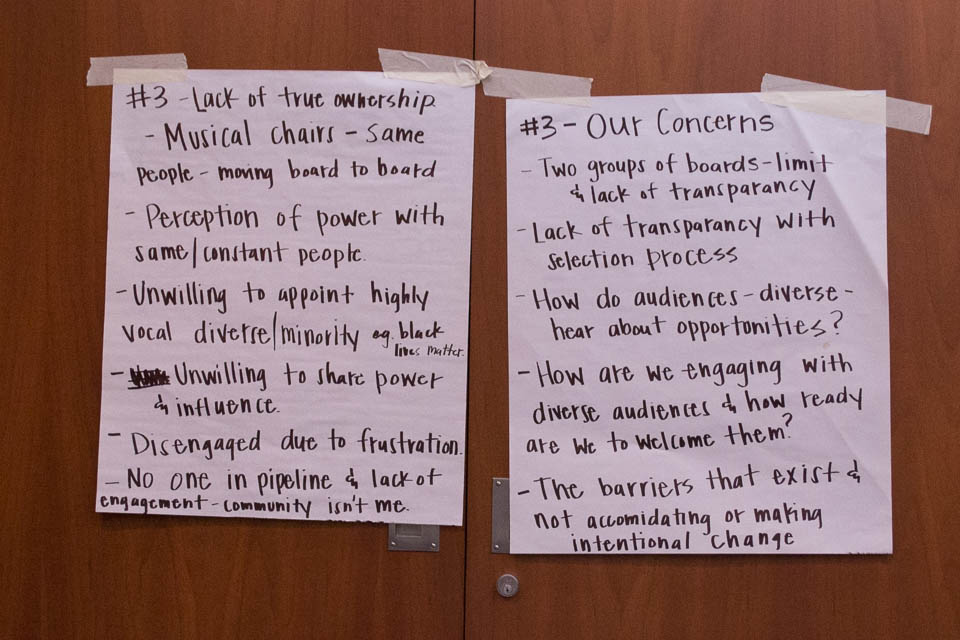 #3 - Lack of true ownership.
- Musical chairs - same
people - moving board to board
- Perception of power with
same/constant people.
- Unwilling to appoint highly
vocal diverse/minority eg. black
lives matter.
- Unwilling to share power
& influence.
- Disengaged due to frustration.
- No one in pipeline & lack of
engagement - community isn't me.
#3 - Our Concerns
- Two groups of boards - limit
& lack of transparancy
- Lack of transparancy with
selection process
- How do audiences - diverse -
hear about opportunities?
- How are we engaging with
diverse audiences & how ready
are we to welcome them?
- The barriers that exist &
not accomidating or making
intentional change